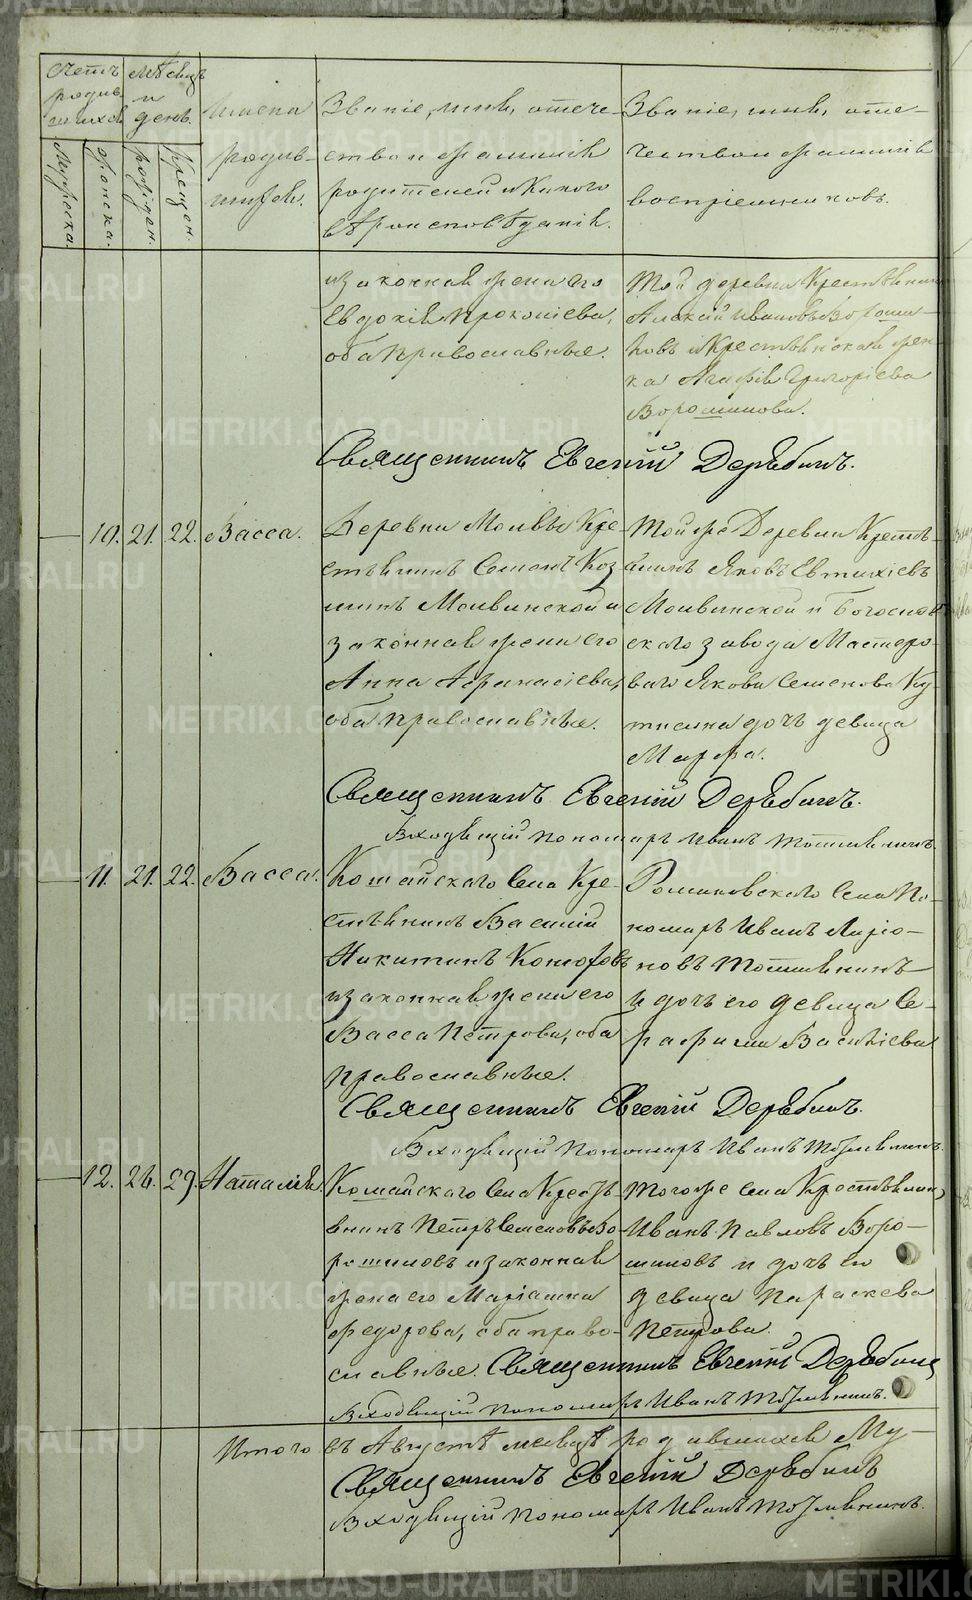 METRIKI.GASO-URAL.RU
Счетъ родив­шихся
Мѣсяцъ и день.
Имена родив-
шихся.
Званіе, имя, отече-
ство и фамилія
родителей и какого
вѣроисповѣданія.
Званіе, имя, оте-
чество и фамилія
воспріемниковъ.
Мужеска.
Женска.
Рожден.
Крещен.
и законная жена его
Евдокія Прокопіева,
оба православные.
Той деревни Крестьянинъ
Алексій Ивановъ Вороши-
ловъ и Крестьянская жен-
ка Агафія Григоріева
Ворошилова.
Священникъ Евгеній Дерябинъ.
10. 21. 22. Васса.
Деревни Молвы Кре-
стьянинъ Семенъ Коз-
минъ Молвинской и
законная жена его
Анна Афанасіева,
оба православные.
Тойже Деревни Кресть-
янинъ Яковъ Евтихіевъ
Молвинской и Богослов-
скаго завода Мастеро-
ваго Якова Семенова
дочь девица
Марфа.
Священникъ Евгеній Дерябинъ.
Входящій пономарь Иванъ
11. 21. 22. Васса.
Кошайскаго Села Кре-
стьянинъ Василій
Никитинъ
и законная жена его
Васса Петрова, оба
православные.
Романовскаго Села По-
номарь Иванъ Ларіо-
новъ
и дочь его девица Се-
рафима Васильева
Священникъ Евгеній Дерябинъ.
Входящій Пономарь Иванъ
12. 26. 29. Наталія.
Кошайскаго Села Кресть-
янинъ Петръ Семеновъ Во-
рошиловъ и законная
жена его Маріамна
Федорова, оба право-
славные.
Тогоже села Крестьянинъ
Иванъ Павловъ Воро-
шиловъ и дочь его
девица Параскева
Петрова.
Священникъ Евгеній Дерябинъ
Входящій пономарь Иванъ
Итого въ Августѣ месяцѣ родившихся Му-
Священникъ Евгеній Дерябинъ
Входящій Пономарь Иванъ